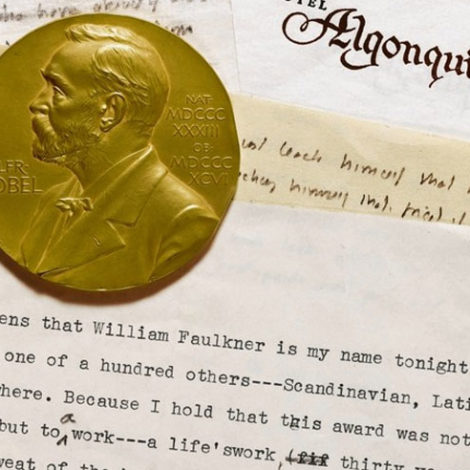 TEL
Algonqui
NAT.
MDCCC
XXXIII
OB.
MDCCC
XCVI
LFR.
OBEL
teach himself that
himself that
ens that William Faulkner is my name tonight
one of a hundred others---Scandinavian, Lati
here. Because I hold that this award was not
but to a work---a life'swork thirty y
weat of the